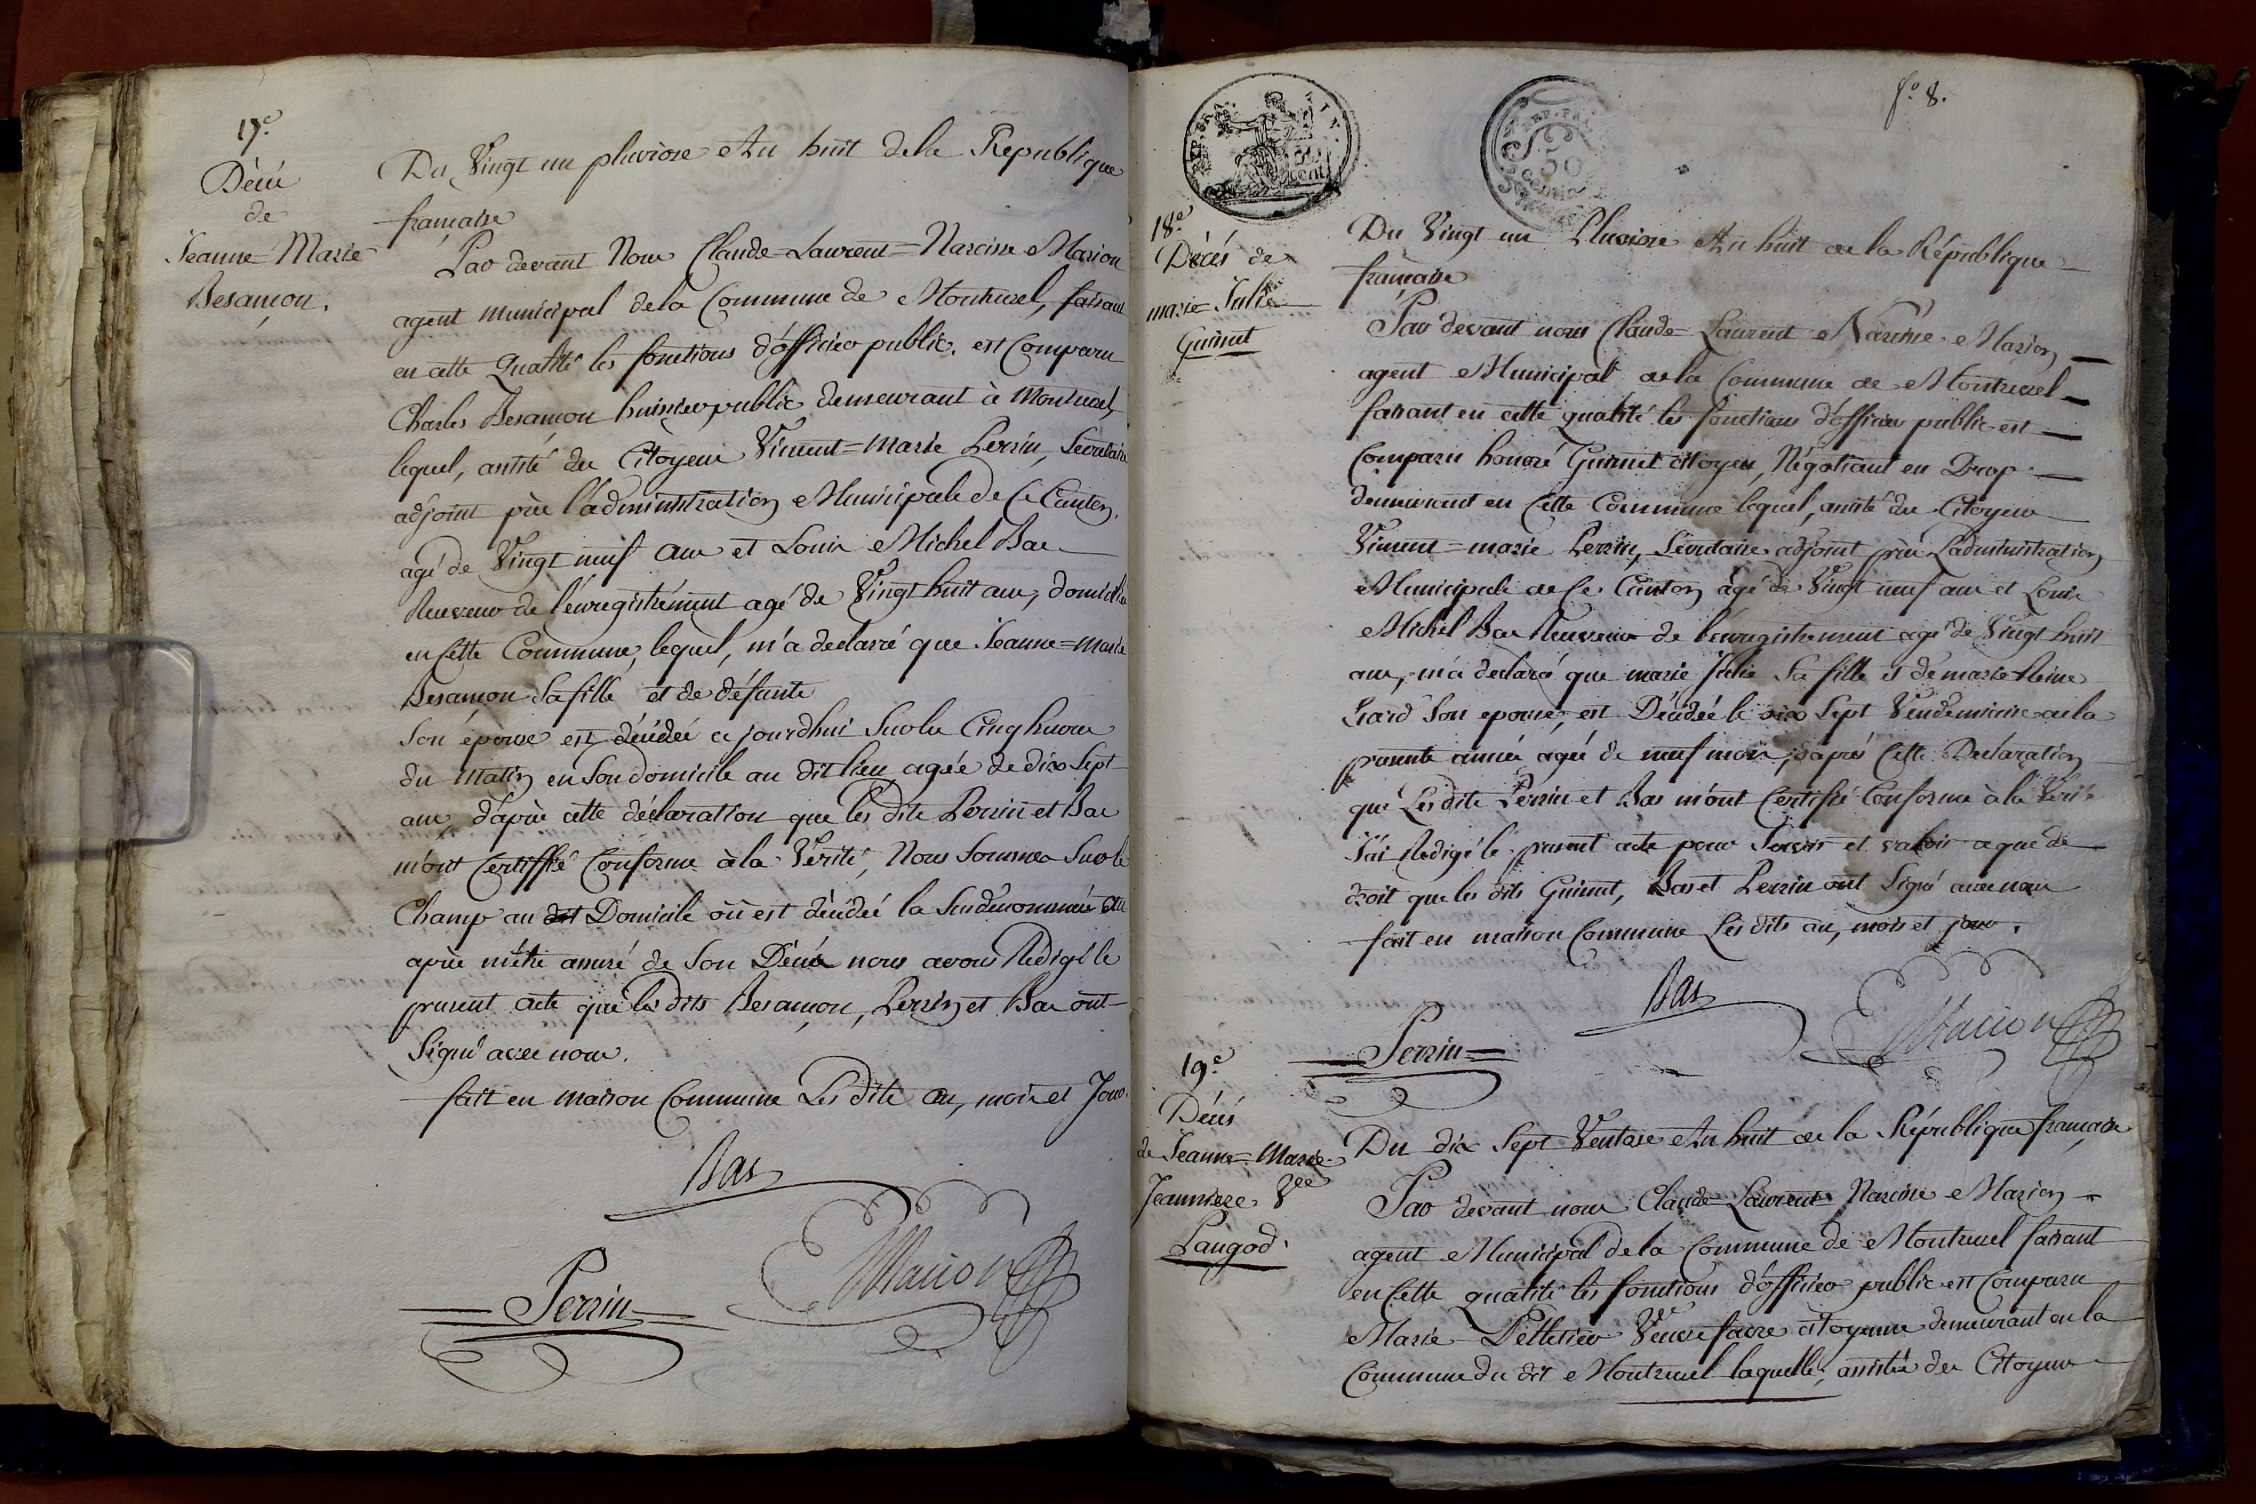 17.e
Décès
de
Jeanne=Marie
Besançon.
Du Vingt un pluviose An huit de la République
française
Par devant Nous Claude=Laurent=Narcisse Marion
agent municipal de la Commune de Montluel, faisant
en cette Qualité les fonctions d'officier public. est Comparu
Charles Besançon huissier public demeurant à Montluel
lequel, assisté du Citoyens Vincent=Marie Perrin, Secretaire
adjoint près l'administration Municipale de Ce Canton,
agé de Vingt neuf ans et Louis Michel Bas
Receveur de l'enregistrément agé de Vingt huit ans, domicilié
en Cette Commune, lequel, m'a declaré que Jeanne=Marie
Besançon Sa fille et de défunte
Son épouse est décédée ce jourd'hui Sur les Cinq heures
du Matin en Son domicile au dit lieu agée de dix Sept
ans, d'après cette déclaration que les dits Perrin et Bas
m'ont Certiffié Conforme à la Vérité, Nous Sommes Sur le
Champ au dit Domicile où est décédée la Susdenommée
après m'être assuré de Son Décès nous avons Rédigé le
present acte que les dits Besançon, Perrin et Bas ont
Signé avec nous.
fait en maison Commune Les dits an, mois et Jour.
Bas
Perrin
Marion
f.o 8.
REP. FRA.
50
cent
REP. FRA.
50
centim
18.e
Décès de
marie Julie
Guinet
Du Vingt un Pluviose An huit de la République
française
Par devant nous Claude=Laurent Narcisse Marion
agent Municipal de la Commune de Montluel
faisant en cette qualité les fonctions d'officier public est
Comparu honoré Guinet citoyen, Négotiant en Drap
demeurant en Cette Commune lequel, assisté du Citoyens
Vincent=marie Perrin, Sécretaire adjoint près L'administration
Municipale de Ce Canton agé de Vingt neuf ans et Louis
Michel Bas Receveur de l'enregistrement agé de Vingt huit
ans, m'a declaré que marie Julie Sa fille et de marie Reine
Son epouse, est Décédée le Sept Vendemiaire de la
presente année agée de neuf mois, d'après Cette Déclaration
que Les dits Perrin et Bas m'ont Certifié Conforme à la Vérité
J'ai Redigé le present acte pour Servir et valoir ce que de
droit que les dits Guinet, Bas et Perrin ont Signé avec nous
fait en maison Commune Les dits an, mois et jour.
Bas
Perrin
Marion
19.e
Décés
de Jeanne=Marie
Jeanniere Vee
Pangod.
Du dix Sept Ventose An huit de la République française
Par devant nous Claude Laurent Narcisse Marion
agent Municipal de la Commune de Montluel faisant
en Cette qualité les fonctions d'officier public est Comparu
Marie Pelletier Ve Veuve favre citoyenne demeurant en la
Commune du dit Montluel laquelle, assistée des Citoyens